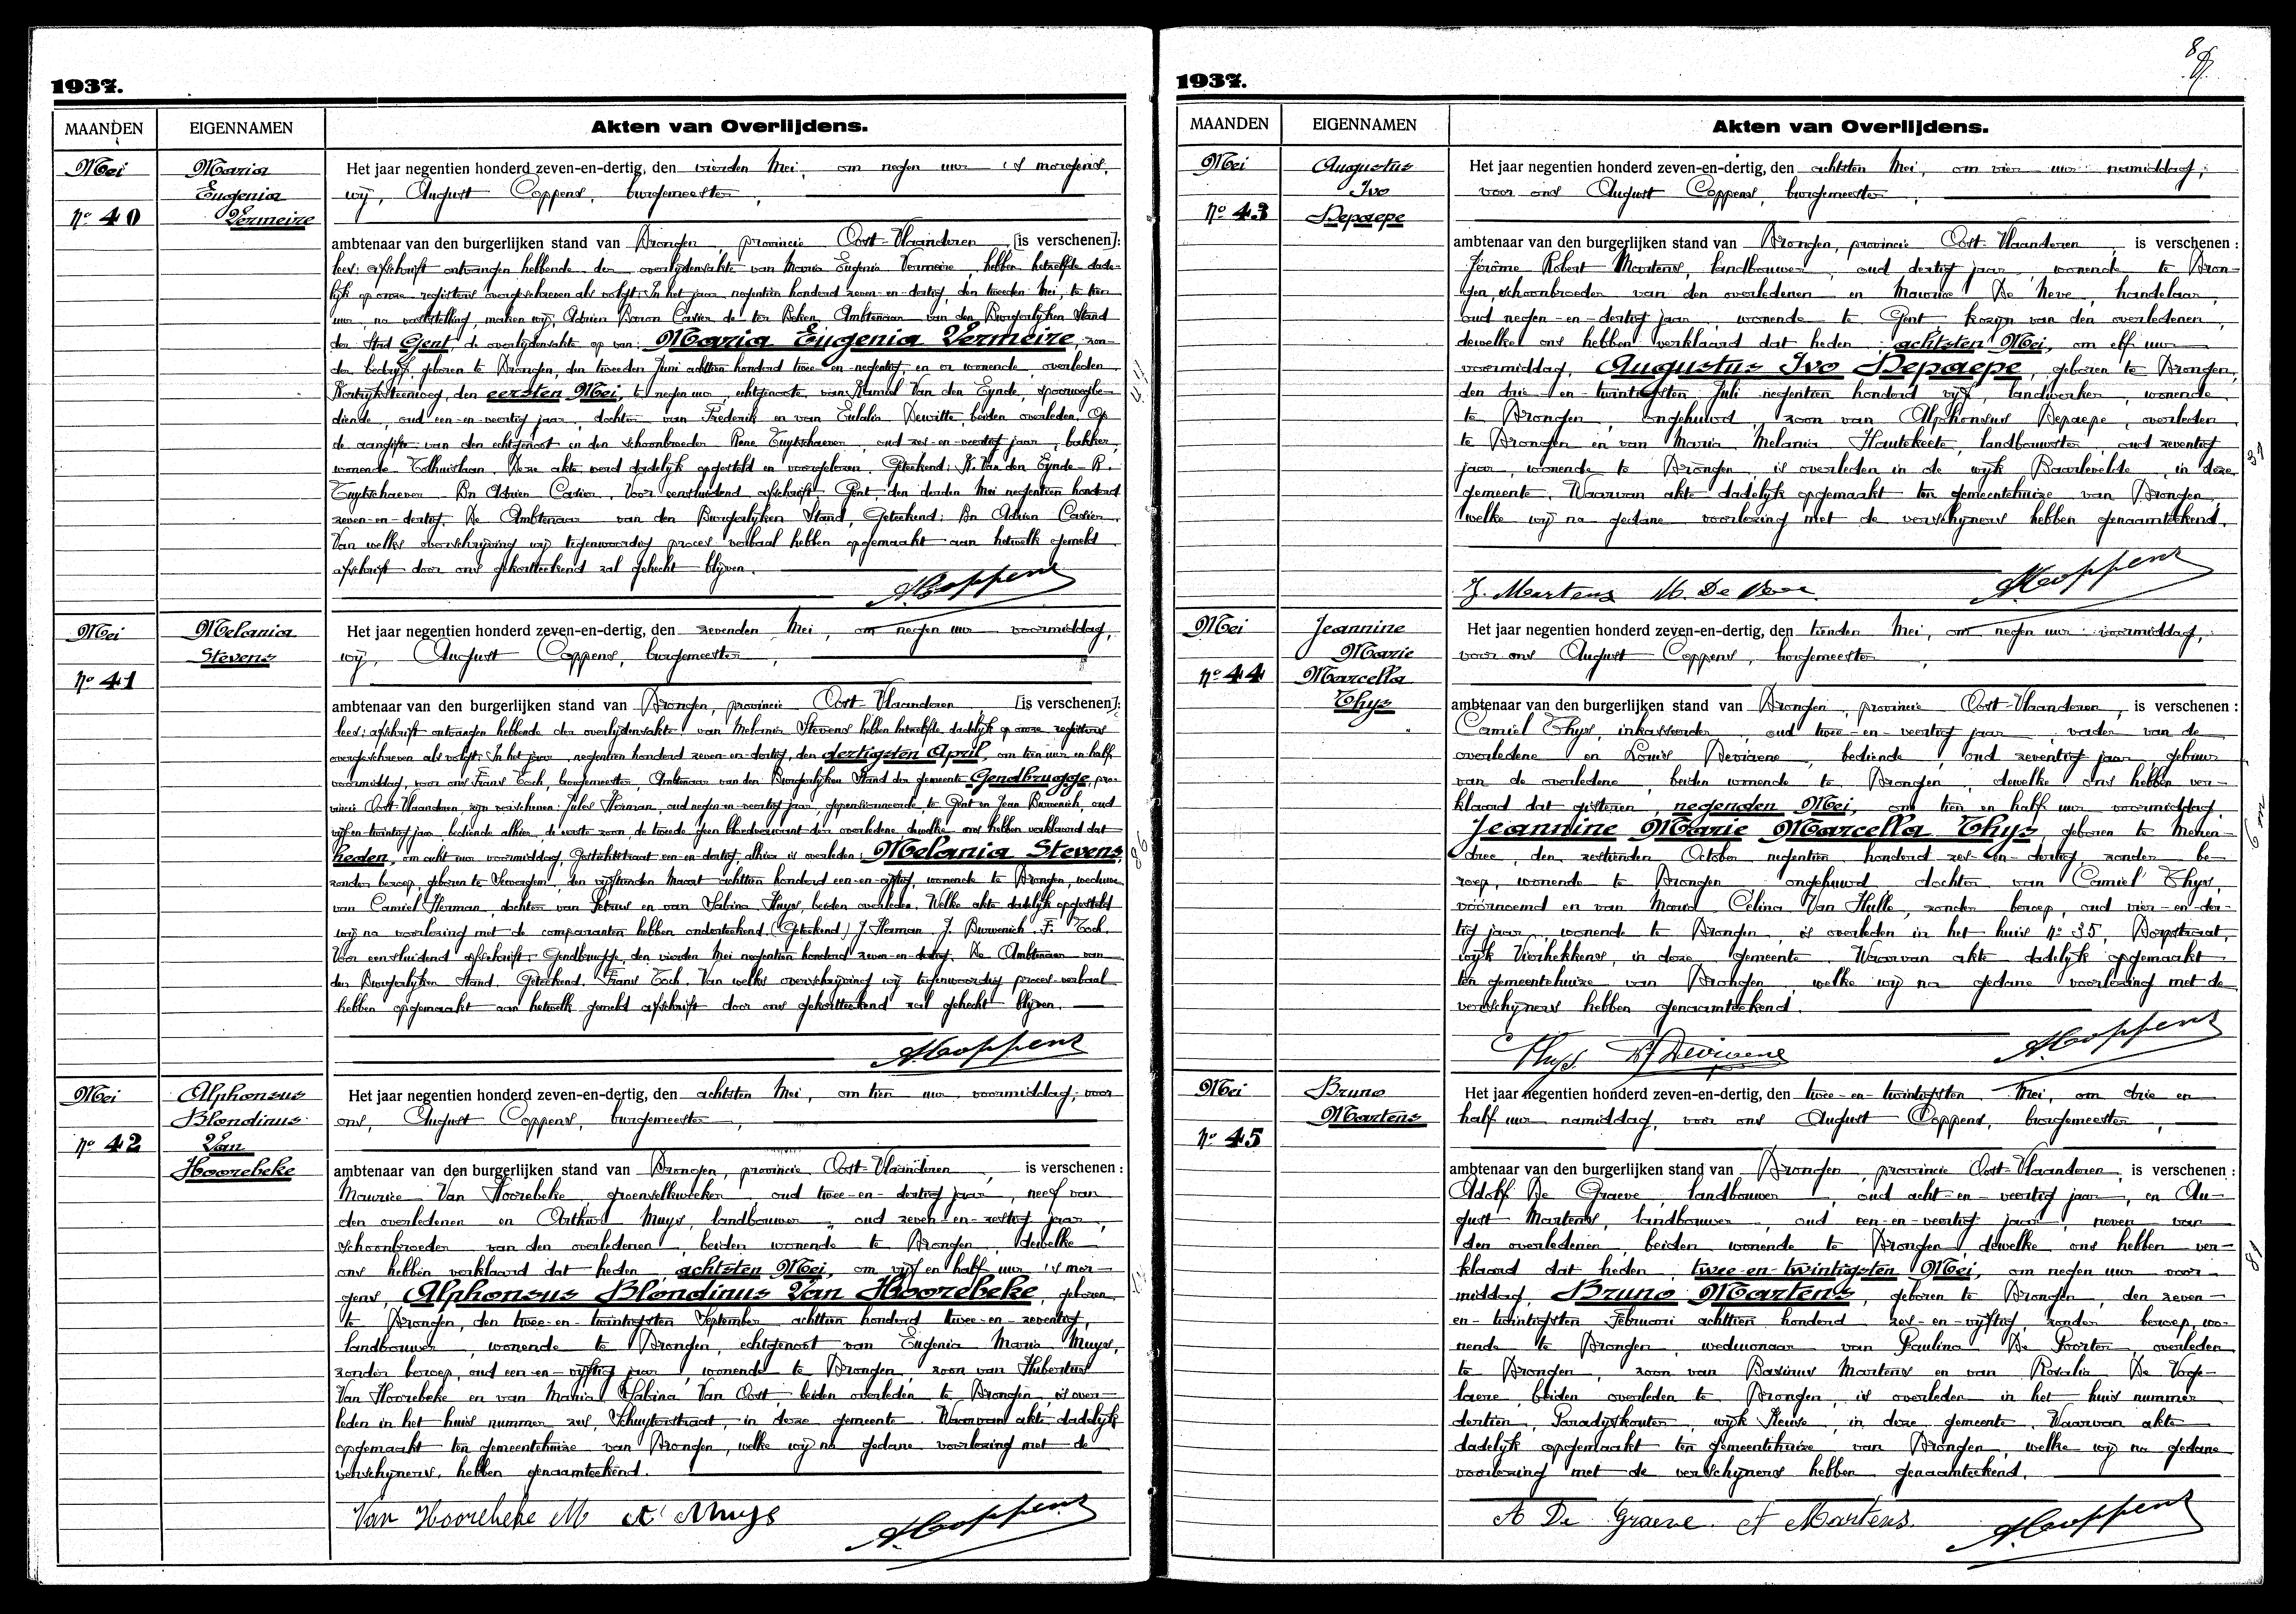 1937.
MAANDEN EIGENNAMEN Akten van Overlijdens.
Mei
Nº 40
Maria
Eugenia
Vermeire
Het jaar negentien honderd zeven-en-dertig, den vierden Mei, om negen uur 's morgens,
wij, August Coppens, burgemeester,
ambtenaar van den burgerlijken stand van Drongen, provincie Oost-Vlaanderen, [is verschenen]:
lees: afschrift ontvangen hebbende der overlijdensakte van Maria Eugenia Vermeire, hebben hetzelfde dade-
lijk op onze registers overgeschreven als volgt: In het jaar negentien honderd zeven-en-dertig, den tweeden Mei, te tien
uur, na vaststelling, maken wij, Adrien Baron Casier de ter Beken, Ambtenaar van den Burgerlijken Stand
der Stad Gent, de overlijdensakte op van: Maria Eugenia Vermeire, zon-
der bedrijf, geboren te Drongen, den tweeden Juni achttien honderd twee-en-negentig, en er wonende, overleden
Kortrijksteenweg, den eersten Mei, te negen uur, echtgenoote van Kamiel Van den Eynde, spoorwegbe-
diende, oud een-en-veertig jaar, dochter van Frederik en van Eulalia Dewitte, beiden overleden. Op
de aangifte van den echtgenoot en den schoonbroeder Rene Tuytschaever, oud zes-en-veertig jaar, bakker,
wonende Tolhuislaan. Deze akte werd dadelijk opgesteld en voorgelezen. Geteekend: K. Van den Eynde - R.
Tuytschaever Bn Adrien Casier. Voor eensluidend afschrift: Gent, den derden Mei negentien honderd
zeven-en-dertig. De Ambtenaar van den Burgerlijken Stand, Geteekend: Bn Adrien Casier.
Van welke overschrijving wij tegenwoordig proces verbaal hebben opgemaakt aan hetwelk gemeld
afschrift door ons gekortteekend zal gehecht blijven.
A. Coppens
Mei
Nº 41
Melania
Stevens
Het jaar negentien honderd zeven-en-dertig, den zevenden Mei, om negen uur voormiddag,
wij, August Coppens, burgemeester,
ambtenaar van den burgerlijken stand van Drongen, provincie Oost-Vlaanderen, [is verschenen]:
lees: afschrift ontvangen hebbende der overlijdensakte van Melania Stevens hebben hetzelfde dadelijk op onze registers
overgeschreven als volgt: In het jaar negentien honderd zeven-en-dertig, den dertigsten April, om tien uur en half
voormiddag, voor ons Frans Toch, burgemeester, Ambtenaar van den Burgerlijken Stand der gemeente Gendbrugge, pro-
vincie Oost-Vlaanderen, zijn verschenen: Jules Herman, oud negen-en-veertig jaar, gepensionneerde, te Gent en Jean Burvenich, oud
vijf-en-twintig jaar, bediende alhier, de eerste zoon, de tweede geen bloedverwant der overledene, dewelke ons hebben verklaard dat
heden, om acht uur voormiddag, Gestichtstraat een-en-dertig, alhier is overleden: Melania Stevens,
zonder beroep, geboren te Severgem, den vijftienden Maart achttien honderd een-en-vijftig, wonende te Drongen, weduwe
van Camiel Herman, dochter van Petrus en van Sabina Huys, beiden overleden. Welke akte dadelijk opgesteld
wij na voorlezing met de comparanten hebben onderteekend. (Geteekend) J. Herman. J. Burvenich. F. Toch.
Voor eensluidend afschrift: Gendbrugge, den vierden Mei negentien honderd zeven-en-dertig. De Ambtenaar van
den Burgerlijken Stand. Geteekend. Frans Toch. Van welke overschrijving wij tegenwoordig proces verbaal
hebben opgemaakt aan hetwelk gemeld afschrift door ons gekortteekend zal gehecht blijven.
A. Coppens
Mei
Nº 42
Alphonsus
Blondinus
Van
Hoorebeke
Het jaar negentien honderd zeven-en-dertig, den achtsten Mei, om tien uur voormiddag, voor
ons, August Coppens, burgemeester,
ambtenaar van den burgerlijken stand van Drongen, provincie Oost-Vlaanderen, is verschenen:
Maurice Van Hoorebeke, groenselkweeker, oud twee-en-dertig jaar, neef van
den overledenen en Arthur Muys, landbouwer, oud zeven-en-zestig jaar,
schoonbroeder van den overledenen, beiden wonende te Drongen, dewelke
ons hebben verklaard dat heden, achtsten Mei, om vijf en half uur 's mor-
gens, Alphonsus Blondinus Van Hoorebeke, geboren
te Drongen, den twee-en-twintigsten September achttien honderd twee-en-zeventig,
landbouwer, wonende te Drongen, echtgenoot van Eugenia Maria Muys,
zonder beroep, oud een-en-vijftig jaar, wonende te Drongen, zoon van Hubertus
Van Hoorebeke en van Maria Sabina Van Oost, beiden overleden te Drongen, is over-
leden in het huis nummer zes, Schuyterstraat, in deze gemeente. Waarvan akte dadelijk
opgemaakt ten gemeentehuize van Drongen, welke wij na gedane voorlezing met de
verschijners, hebben genaamteekend.
Van Hoorebeke M A Muys A. Coppens
1937.
MAANDEN EIGENNAMEN Akten van Overlijdens.
Mei
Nº 43
Augustus
Ivo
Depaepe
Het jaar negentien honderd zeven-en-dertig, den achtsten Mei, om vier uur namiddag,
voor ons August Coppens, burgemeester,
ambtenaar van den burgerlijken stand van Drongen, provincie Oost-Vlaanderen, is verschenen:
Jérôme Robert Martens, landbouwer, oud dertig jaar, wonende te Dron-
gen, schoonbroeder van den overledenen en Maurice De Neve, handelaar,
oud negen-en-dertig jaar, wonende te Gent kozijn van den overledenen,
dewelke ons hebben verklaard dat heden achtsten Mei, om elf uur
voormiddag, Augustus Ivo Depaepe, geboren te Drongen,
den drie-en-twintigsten Juli negentien honderd vijf, landwerker, wonende
te Drongen, ongehuwd, zoon van Alphonsus Depaepe, overleden
te Drongen en van Maria Melania Hautekeete, landbouwster, oud zeventig
jaar, wonende te Drongen, is overleden in de wijk Baarlevelde, in deze
gemeente. Waarvan akte dadelijk opgemaakt ten gemeentehuize van Drongen,
welke wij na gedane voorlezing met de verschijners hebben genaamteekend.
J. Martens M. De Neve A. Coppens
Mei
Nº 44
Jeannine
Marie
Marcella
Thys
Het jaar negentien honderd zeven-en-dertig, den tienden Mei, om negen uur voormiddag,
voor ons August Coppens, burgemeester,
ambtenaar van den burgerlijken stand van Drongen, provincie Oost-Vlaanderen, is verschenen:
Camiel Thys, inkasseerder, oud twee-en-veertig jaar, vader van de
overledene en Louis Deviaene, bediende, oud zeventig jaar, gebuur
van de overledene, beiden wonende te Drongen, dewelke ons hebben ver-
klaard dat gisteren, negenden Mei, om tien en half uur voormiddag
Jeannine Marie Marcella Thys, geboren te Meren-
dree, den zestienden October negentien honderd zes-en-dertig, zonder be-
roep, wonende te Drongen ongehuwd, dochter van Camiel Thys,
vóórnoemd en van Maria Celina Van Hulle, zonder beroep, oud vier-en-der-
tig jaar, wonende te Drongen, is overleden in het huis Nº 35, Dorpstraat,
wijk Vierhekkens, in deze gemeente. Waarvan akte dadelijk opgemaakt
ten gemeentehuize van Drongen, welke wij na gedane voorlezing met de
verschijners hebben genaamteekend.
Thys Deviaene A. Coppens
Mei
Nº 45
Bruno
Martens
Het jaar negentien honderd zeven-en-dertig, den twee-en-twintigsten Mei, om drie en
half uur namiddag, voor ons August Coppens, burgemeester,
ambtenaar van den burgerlijken stand van Drongen, provincie Oost-Vlaanderen, is verschenen:
Adolf De Graeve, landbouwer, oud acht-en-veertig jaar, en Au-
gust Martens, landbouwer, oud een-en-veertig jaar, neven van
den overledenen, beiden wonende te Drongen, dewelke ons hebben ver-
klaard dat heden, twee-en-twintigsten Mei, om negen uur voor-
middag, Bruno Martens, geboren te Drongen, den zeven-
en-twintigsten Februari achttien honderd zes-en-vijftig, zonder beroep, wo-
nende te Drongen, weduwnaar van Paulina De Poorter, overleden
te Drongen, zoon van Basinus Martens en van Rosalia De Voge-
laere, beiden overleden te Drongen, is overleden in het huis nummer
dertien, Paradijskouter, wijk Keuse, in deze gemeente. Waarvan akte
dadelijk opgemaakt ten gemeentehuize van Drongen, welke wij na gedane
voorlezing met de verschijners hebben genaamteekend.
A De Graeve A Martens A. Coppens